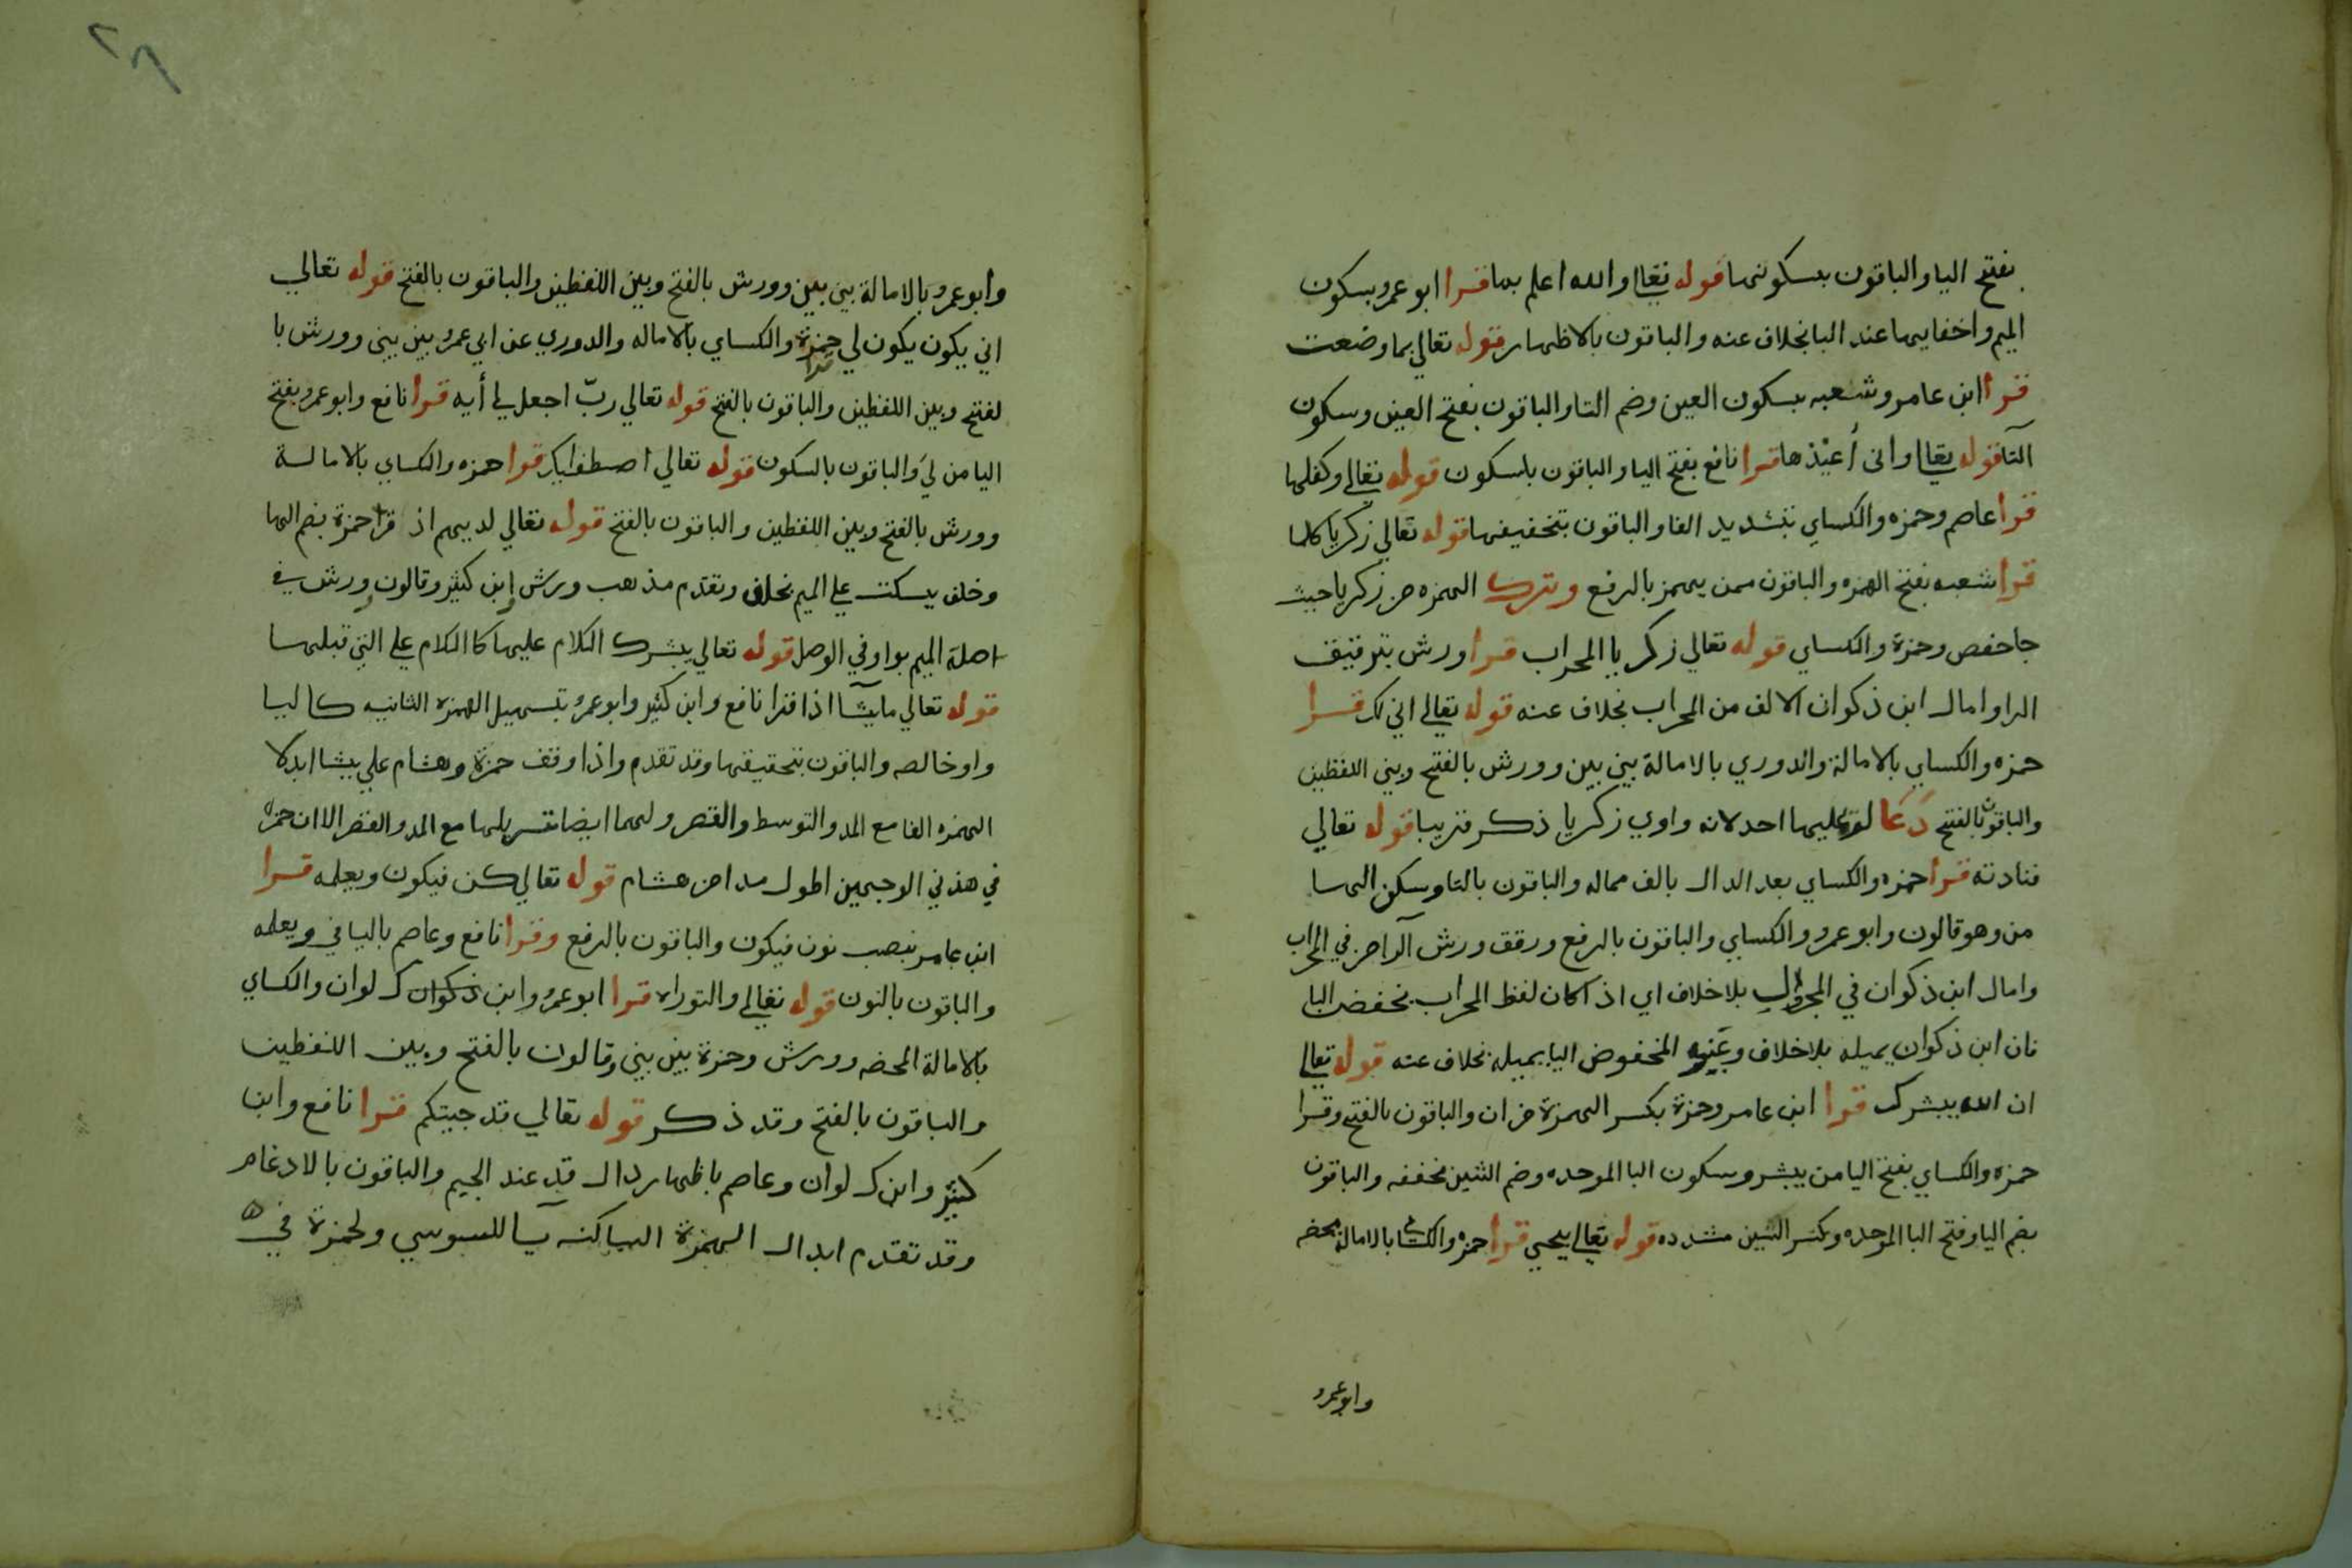 بفتح اليا والباقون بسكونها قوله تعالى والله اعلم بما قرا ابو عمرو بسكون
الميم واخفايها عند البا بخلاف عنه والباقون بالاظهار قوله تعالي بما وضعت
قرا ابن عامر وشعبه بسكون العين وضم التا والباقون بفتح العين وسكون
التا قوله تعالى وانى أعيذها قرا نافع بفتح اليا والباقون بلسكون قوله تعالى وكفلها
قرا عاصم وحمزه والكساي بتشديد الفا والباقون بتخفيفها قوله تعالي زكريا كلما
قرا شعبه بفتح الهمزه والباقون ممن يهمز بالرفع وترك الهمزه من زكريا حيث
جا حفص وحمزة والكساي قوله تعالي زكريا المحراب قرا ورش بترقيق
الرا وامال ابن ذكوان الالف من المحراب بخلاف عنه قوله تعالى اني لك قرا
حمزه والكساي بالامالة والدوري بالامالة بين بين وورش بالفتح وبين اللفظين
والباقون بالفتح دعا لم عليها احد لانه واوي زكريا ذكر قريبا قوله تعالي
فنادته قرا حمزه والكساي بعد الدال بالف مماله والباقون بالتا وسكن الها
من وهو قالون وابو عمرو والكساي والباقون بالرفع ورقق ورش الرا من في المحراب
وامال ابن ذكوان في المحراب بلا خلاف اي اذا كان لفظ المحراب بخفض البا
فان ابن ذكوان يميله بلا خلاف وغير المخفوض اليا يميله بخلاف عنه قوله تعالى
ان الله يبشرك قرا ابن عامر وحمزة بكسر الهمزة من ان والباقون بالفتح وقرا
حمزه والكساي بفتح اليا من يبشر وسكون البا الموحده وضم الشين مخففه والباقون
بضم اليا وفتح البا الموحده وكسر الشين مشدده قوله تعالى بيحيى قرا حمزه والكساي بالامالة محضه
وابو عمرو
٢٨
وابو عمرو بالامالة بين بين وورش بالفتح وبين اللفظين والباقون بالفتح قوله تعالي
اني يكون يكون لي حمزة والكساي بالاماله والدوري عن ابي عمرو بين بين وورش با
قرا
لفتح وبين اللفظين والباقون بالفتح قوله تعالي ربّ اجعل لي أيه قرا نافع وابو عمرو بفتح
اليا من لي والباقون بالسكون قوله تعالي اصطفايك قرا حمزه والكساي بالامالة
وورش بالفتح وبين اللفظين والباقون بالفتح قوله تعالي لديهم اذ قرا حمزة بضم الها
وخلف يسكت علي الميم بخلاف وتقدم مذهب ورش وابن كثير وقالون وورش في
اصلة الميم بواو في الوصل قوله تعالي يبشرك الكلام عليها كالكلام علي التي قبلها
قوله تعالي ما يشآ اذا قرا نافع وابن كثير وابو عمرو بتسهيل الهمزه الثانيه كاليا
واو خالصه والباقون بتحقيقها وقد تقدم واذا وقف حمزة وهشام علي يشا ابدلا
الهمزه الفا مع المد والتوسط والقصر ولهما ايضا تسهيلها مع المد والقصر الا ان حمزه
في هذين الوجهين اطول مدا من هشام قوله تعالي كن فيكون ويعلمه قرا
ابن عامر بنصب نون فيكون والباقون بالرفع وقرا نافع وعاصم باليا في ويعلمه
والباقون بالنون قوله تعالي والتوراه قرا ابو عمرو وابن ذكوان كـ لوان والكساي
بالامالة المحضه وورش وحمزة بين بين وقالون بالفتح وبين اللفظين
والباقون بالفتح وقد ذكر قوله تعالي قد جيتكم قرا نافع وابن
كثير وابن كـ لوان وعاصم باظهار دال قد عند الجيم والباقون بالادغام
وقد تقدم ابدال الهمزة الساكنه يا للسوسي ولحمزة في